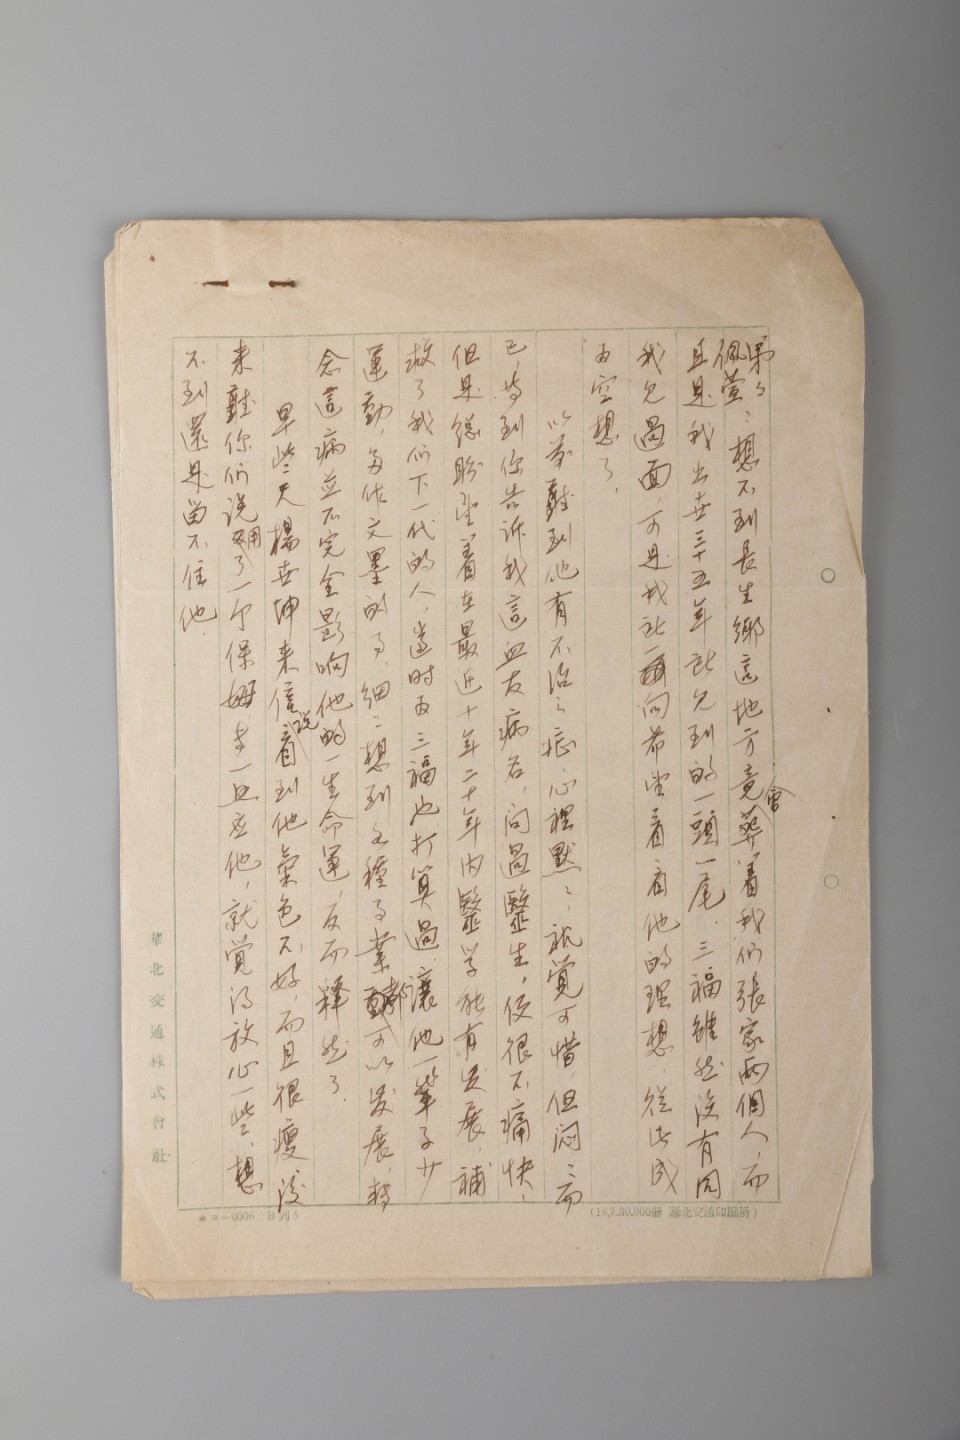 弟弟
佩萱：想不到長生鄉這地方竟會葬着我们張家兩個人，而
且是我出世三十五年就允到的一頭一尾．三福雖然没有同
我允過面，可是我就一向希望看看他的理想．從此成
为空想了．
以前聽到他有不治之症，心裡默默就覺可惜，但闷闷而
已，等到你告訴我這血友病名，问過醫生，便很不痛快，
但是總盼望着在最近十年二十年内醫学能有发展，補
救了我们下一代的人，當时为三福也打算過，讓他一輩子少
運動，多作文墨的事，细细想到這種事業都可以发展，
念這病並不完全影响他的一生命運，反而釋然了．
早些天楊世坤来信說看到他氣色不好，而且很瘦後
来聽你们说用了一个保姆．去一直在他，就觉得放心一些，想
不到還是留不住他．
華北交通株式會社
0006 B列5
(18.7.30,000冊 華北交通印刷所)